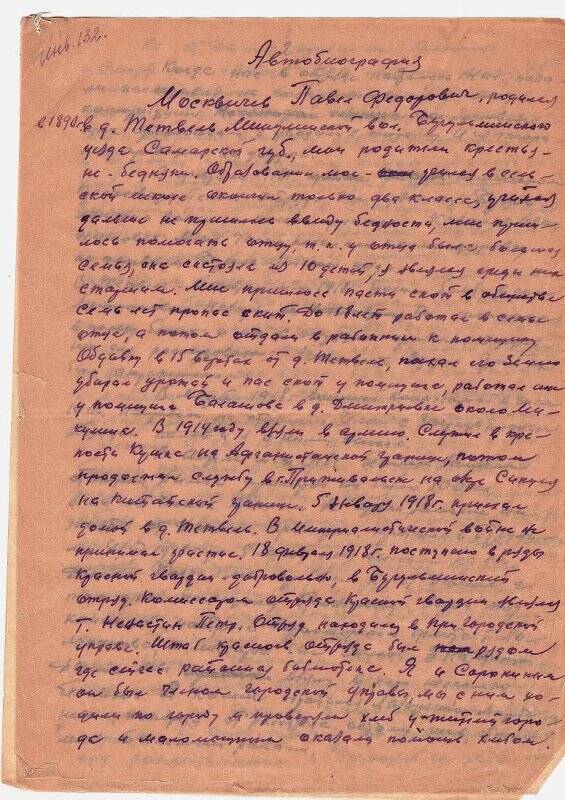 инв. 132.
Автобиография
Москвичев Павел Федорович, родился
в 1890г. в д. Тетвель Микулинской вол. Бугульминского
уезда Самарской губ., мои родители крестья-
не-бедняки. Образование мое - учился в сель-
ской школе окончил только два класса, учиться
дальше не пришлось ввиду бедности, мне приш-
лось помогать отцу, т.к. у отца была большая
семья, она состояла из 10 детей, я являлся среди них
старшим. Мне пришлось пасти скот в обществе
семь лет пропас скот. До 18 лет работал в семье
отца, а потом отдали в работники к помещику
в 15 верстах от д. Тетвель, пахал его землю
убирал урожай и пас скот у помещика, работал
у помещика Балашова в д. Дмитриевке около Ми-
кулина. В 1914 году взяли в армию. Служил в кре-
пости Кушка на Афганистанской границе, потом
продолжал службу в г. Пржевальске на
на Китайской границе. 5 января 1918г. приехал
домой в д. Тетвель. В империалистической войне не
принимал участие. 18 февраля 1918г. поступаю в ряды
Красной гвардии - добровольно, в Бугульминский
отряд. Комиссаром отряда Красной гвардии являлся
т. Петр. Отряд находился при городской
управе. Штаб красной. отряда был рядом
где сейчас районная библиотека. Я и Сорокин
он был членом городской управы, мы с ним хо-
дили по городу и проверяли хлеб у жителей горо-
да и маломощным оказали помощь хлебом.